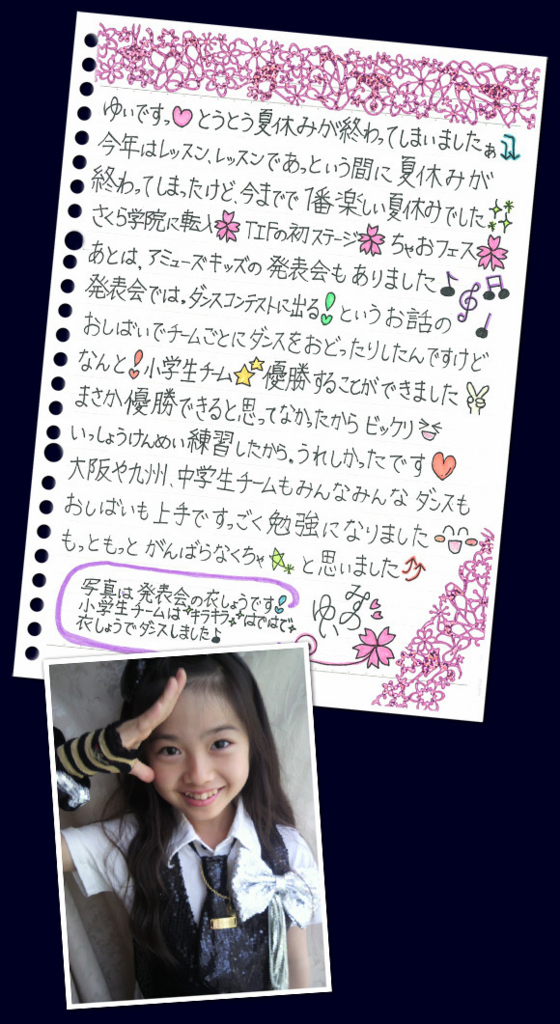 ゆいですっ♥とうとう夏休みが終わってしまいましたぁ
今年はレッスン、レッスンであっという間に夏休みが
終わってしまったけど、今までで1番楽しい夏休みでした
さくら学院に転入 TIFの初ステージ ちゃおフェス
あとは、アミューズキッズの発表会もありました♪
発表会では。ダンスコンテストに出る!というお話の
おしばいでチームごとにダンスをおどったりしたんですけど
なんと!小学生チーム 優勝することができました
まさか優勝できると思ってなかったからビックリ
いっしょうけんめい練習したから。うれしかったです♥
大阪や九州、中学生チームもみんなみんなダンスも
おしばいも上手ですっごく勉強になりました
もっともっとがんばらなくちゃ☆と思いました
写真は発表会の衣しょうです!
小学生チームは キラキラ はではで
衣しょうでダンスしました♪
みずの
ゆい